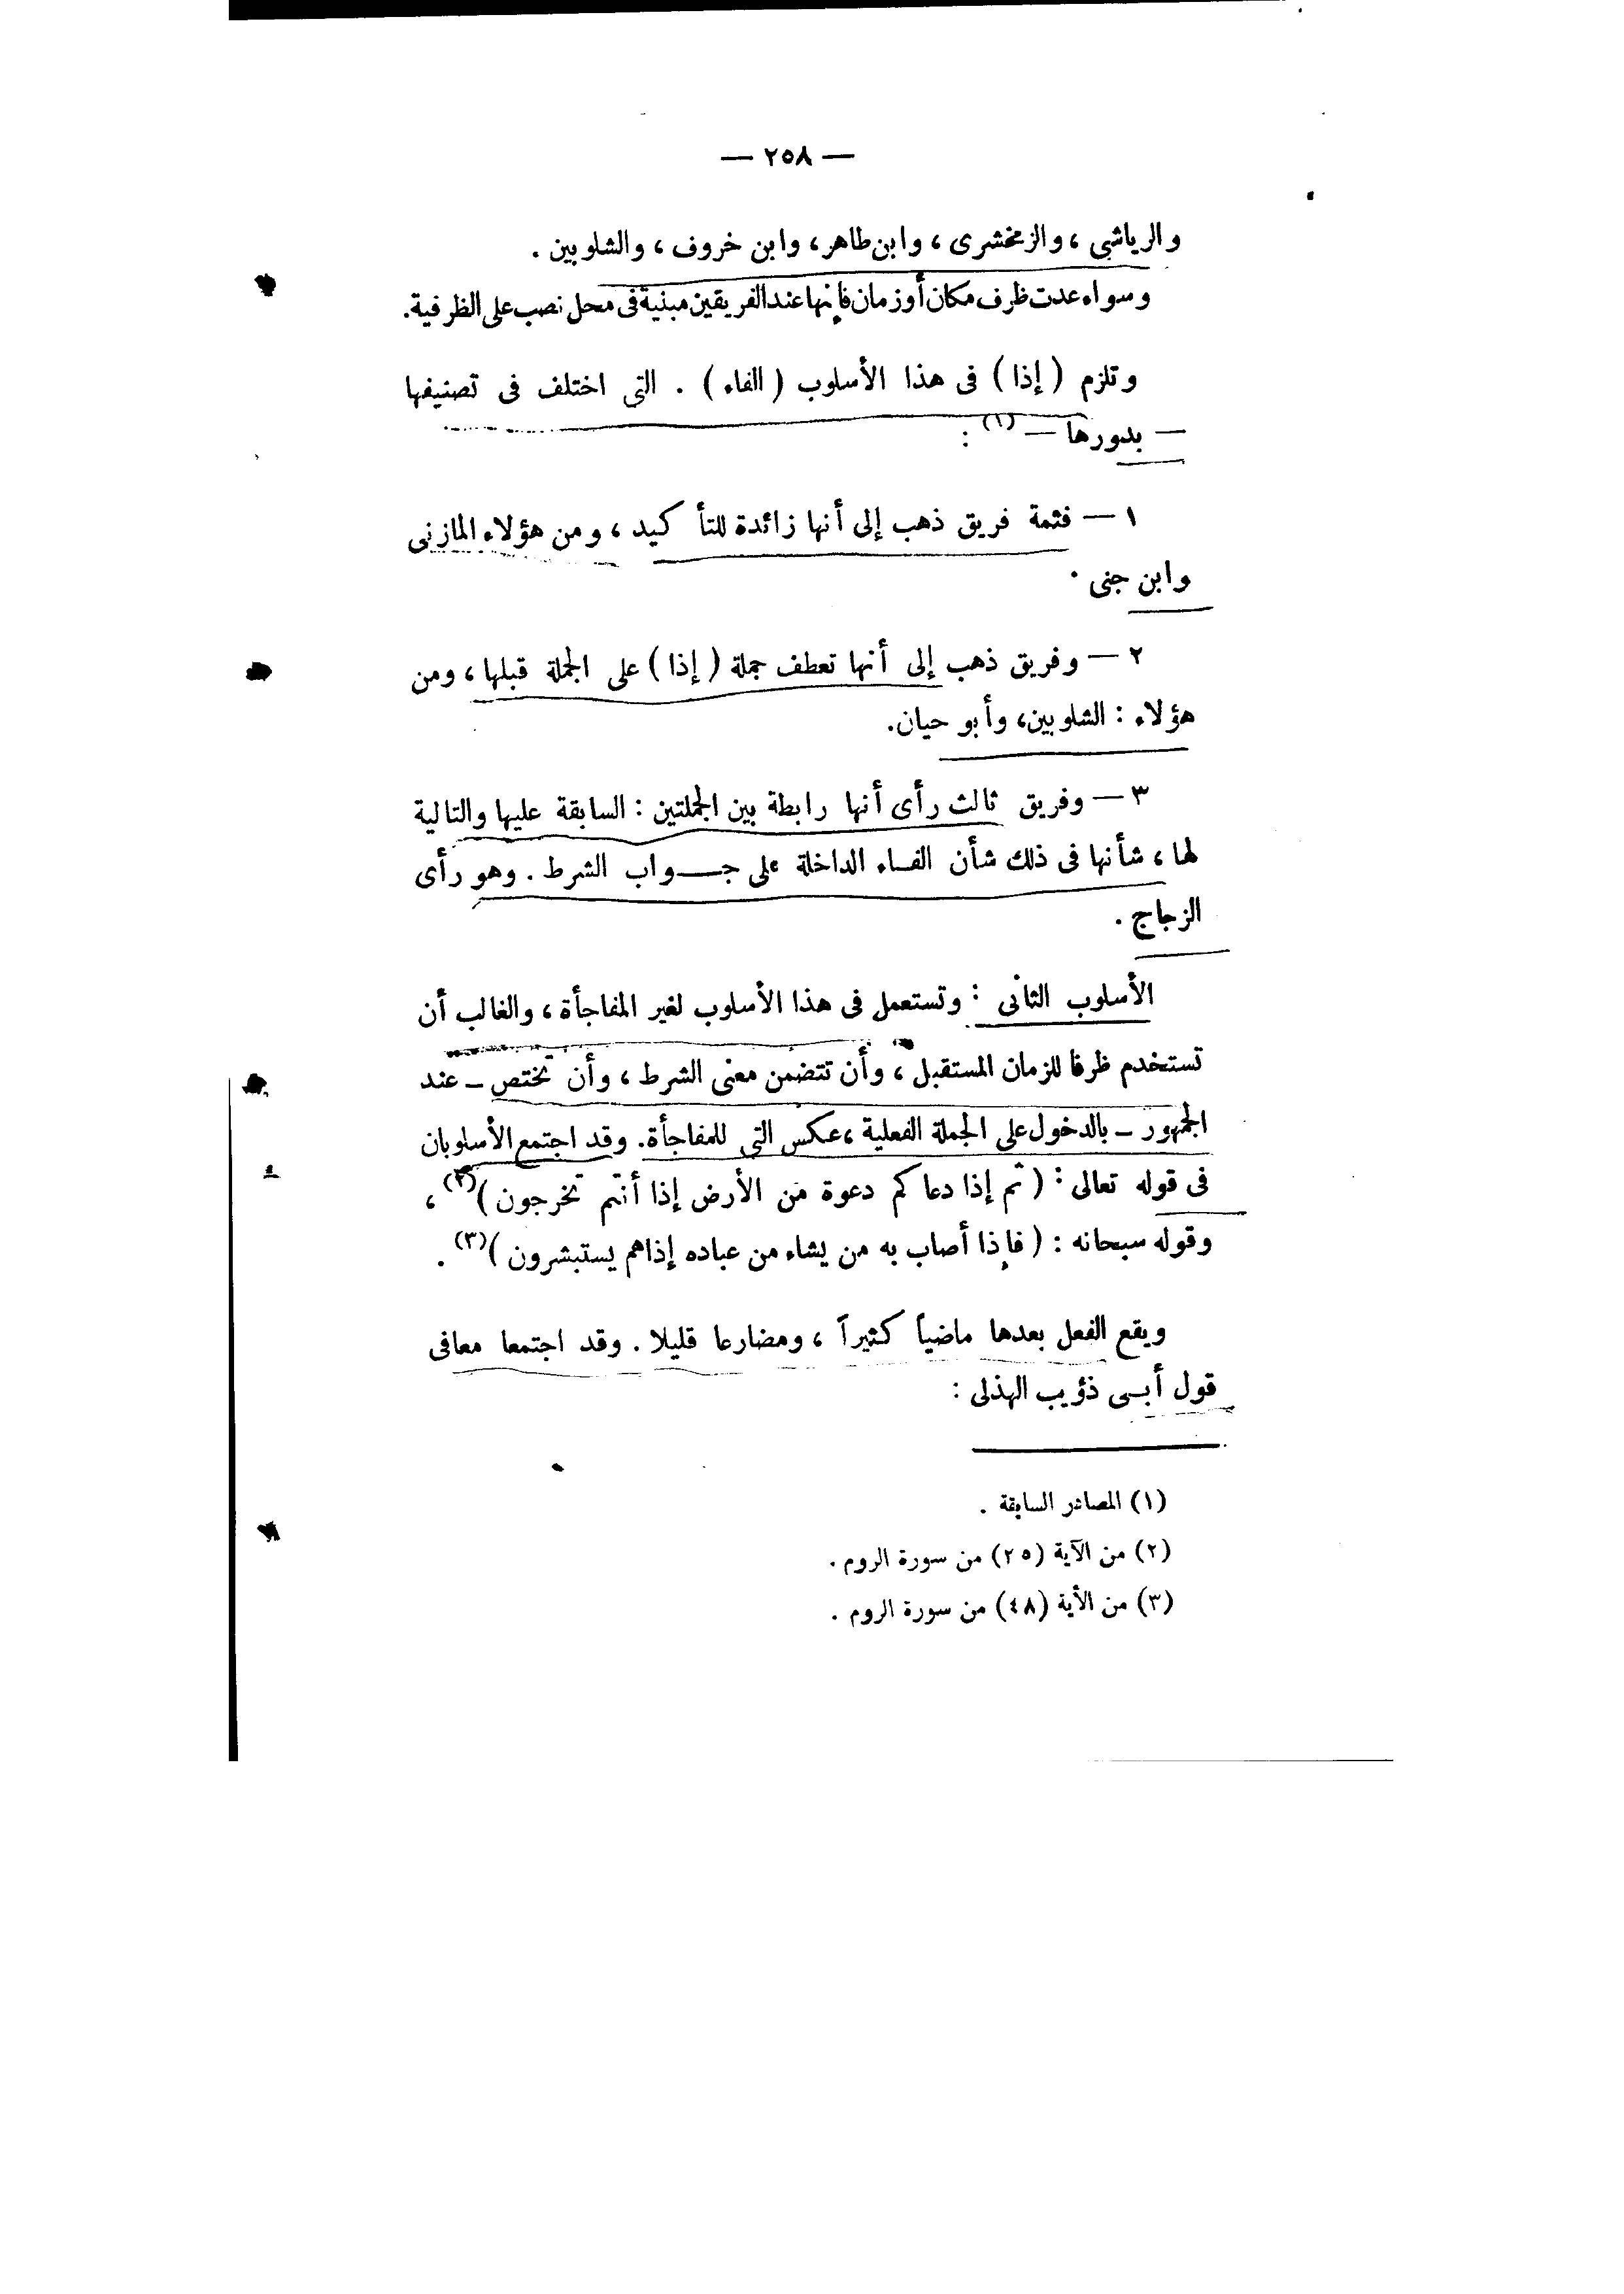 — ٢٥٨ —
والرياشي ، والزمخشرى ، وابن طاهر ، وابن خروف ، والشلوبين .
وسواء عدت ظرف مكان أو زمان فإنها عند الفريقين مبنية فى محل نصب على الظرفية.
وتلزم ( إذا ) فى هذا الأسلوب ( الفاء ) . التى اختلف فى تصنيفها
— بدورها — (١) :
١ — فثمة فريق ذهب إلى أنها زائدة للتأ كيد ، ومن هؤلاء المازنى
وابن جنى .
٢ — وفريق ذهب إلى أنها تعطف جملة ( إذا ) على الجملة قبلها ، ومن
هؤلاء : الشلوبين، وأبو حيان.
٣ — وفريق ثالث رأى أنها رابطة بين الجملتين : السابقة عليها والتالية
لها ، شأنها فى ذلك شأن الفـاء الداخلة على جـــواب الشرط . وهو رأى
الزجاج .
الأسلوب الثانى : وتستعمل فى هذا الأسلوب لغير المفاجأة ، والغالب أن
تستخدم ظرفا للزمان المستقبل ، وأن تتضمن معنى الشرط ، وأن تختص ــ عند
الجمهور ــ بالدخول على الجملة الفعلية ، عكس التى للمفاجأة. وقد اجتمع الأسلوبان
فى قوله تعالى : ( ثم إذا دعا كم دعوة من الأرض إذا أنتم تخرجون )(٢) ،
وقوله سبحانه : ( فإذا أصاب به من يشاء من عباده إذاهم يستبشرون )(٣) .
ويقع الفعل بعدها ماضياً كثيراً ، ومضارعا قليلا . وقد اجتمعا معافى
قول أبـى ذؤيب الهذلى :
(١) المصادر السابقة .
(٢) من الآية (٢٥) من سورة الروم .
(٣) من الأية (٤٨) من سورة الروم .